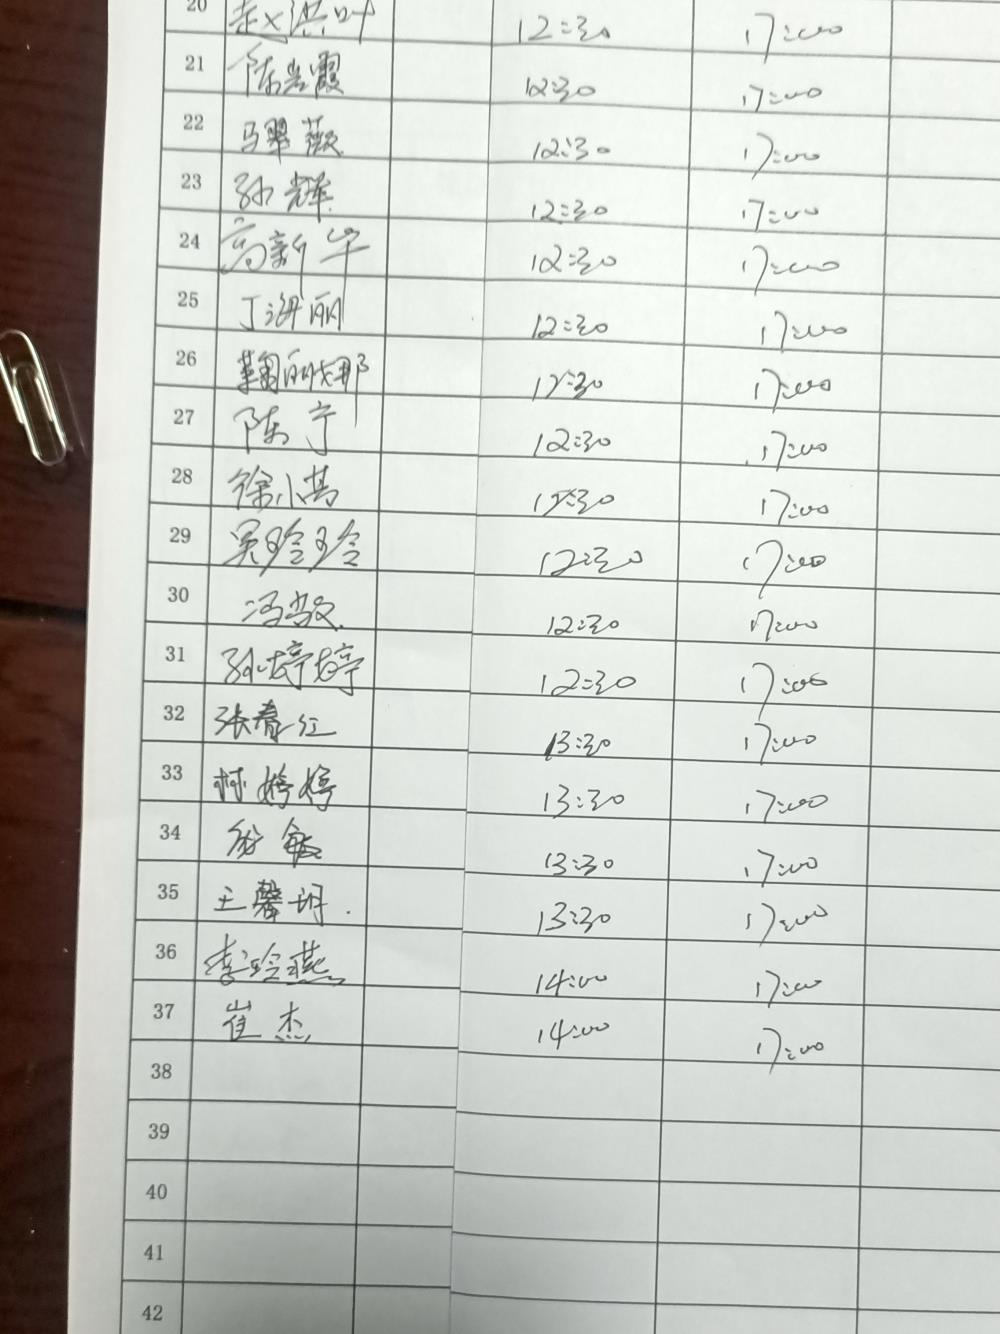 20 赵洪叶 12:30 17:00
21 陈岩霞 12:30 17:00
22 马翠薇 12:30 17:00
23 孙辉 12:30 17:00
24 高新华 12:30 17:00
25 丁海丽 12:30 17:00
26 鞠丽娜 12:30 17:00
27 陈宁 12:30 17:00
28 徐小茜 12:30 17:00
29 吴玲玲 12:30 17:00
30 冯敬 12:30 17:00
31 孙婷婷 12:30 17:00
32 张春红 13:30 17:00
33 林婷婷 13:30 17:00
34 敏 13:30 17:00
35 王馨玥. 13:30 17:00
36 李玲燕 14:00 17:00
37 崔杰 14:00 17:00
38
39
40
41
42